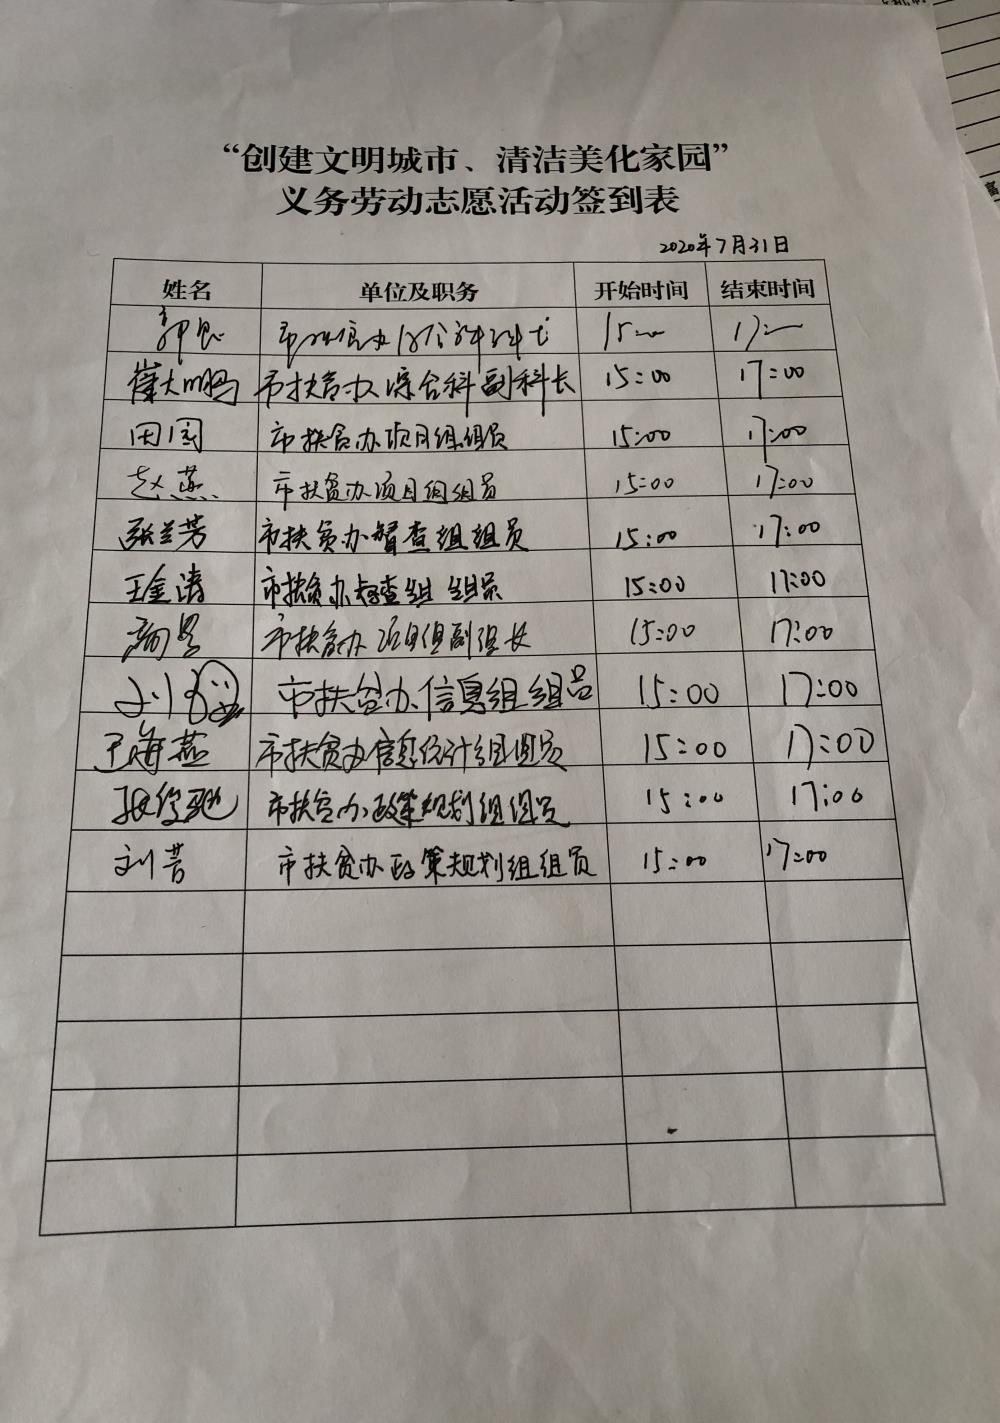 “创建文明城市、清洁美化家园”
义务劳动志愿活动签到表
2020年7月31日
姓名 单位及职务 开始时间 结束时间
15:00 17:00
崔大鹏 市扶贫办综合科副科长 15:00 17:00
田园 市扶贫办项目组组员 15:00 17:00
赵燕 市扶贫办项目组组员 15:00 17:00
张兰芳 市扶贫办督查组组员 15:00 17:00
王金涛 市扶贫办督查组组员 15:00 17:00
市扶贫办项目组副组长 15:00 17:00
市扶贫办信息组组员 15:00 17:00
王海燕 市扶贫办信息统计组组员 15:00 17:00
市扶贫办政策规划组组员 15:00 17:00
刘昔 市扶贫办政策规划组组员 15:00 17:00